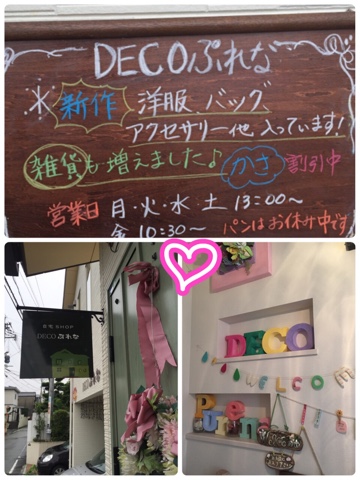 DECOぷれな
＊新作 洋服 バッグ
アクセサリー他 入っています!
雑貨も増えました♪ かさ 割引中
営業日 月・火・水・土 13:00〜
金 10:30〜 パンはお休み中です
SHOP
DECO ぷれな
DECO
WELCOME